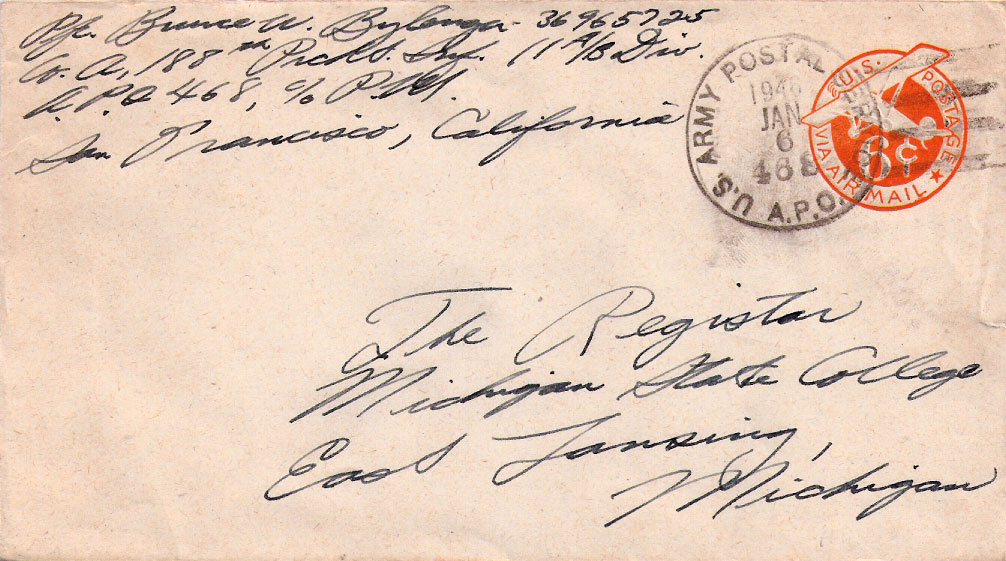 Pfc. Bruce W. Bylenga - 36965725
Co. A, 188th Prcht. Inf. 11 A/B Div.
A.P.O. 468, c/o P.M.
San Francisco, California
U.S. ARMY POSTAL
1946
JAN
6
468
A.P.O.
U.S. POSTAGE
6c
VIA AIR MAIL
The Registar
Michigan State College
East Lansing,
Michigan